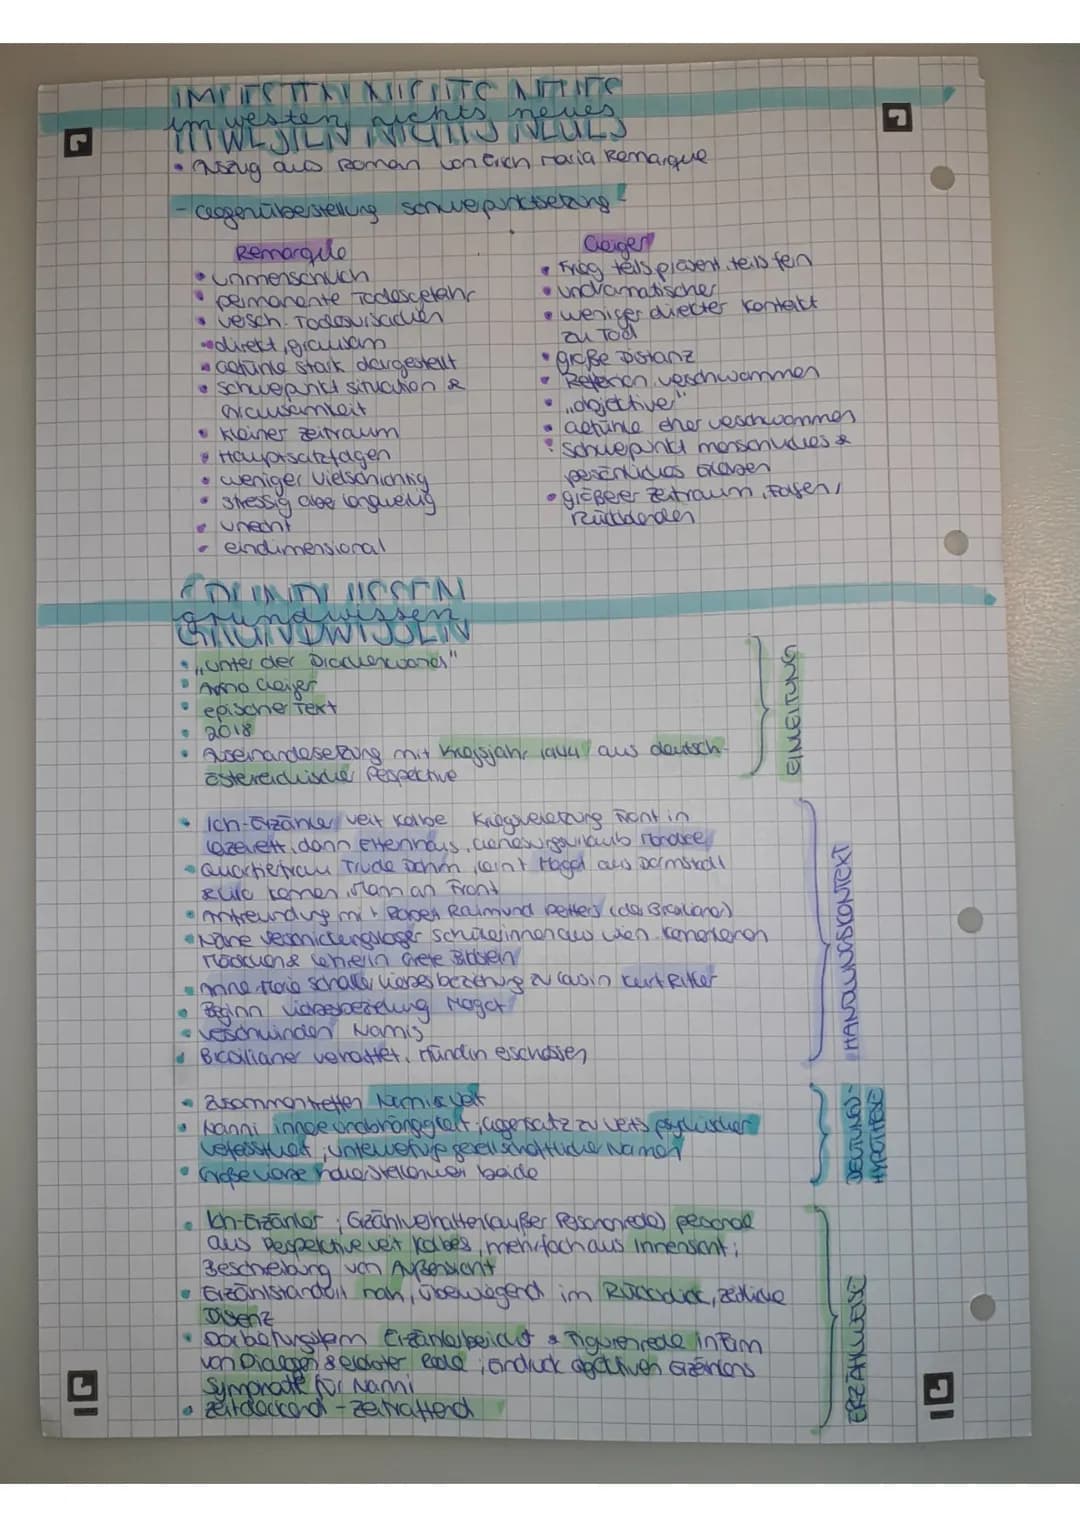 IM WESTEN NICHTS NEUES
im westen nichts neues
• Auszug aus Roman von Erich Maria Remarque
- Gegenüberstellung Schwepunktsetzung
Remarque
• unmenschlich
• permanente Todesgefahr
• versch. Todesursachen
• direkt, grausam
• Gefühle stark dargestellt
• Schwepunkt Situation &
Grausamkeit
• kleiner Zeitraum
• Hauptsatzfolgen
• weniger vielschichtig
• stressig aber langweilig
• unecht
• eindimensional
Geiger
• Krieg teils präsent, teils fern
• undramatischer
• weniger direkter Kontakt
zu Tod
• große Distanz
• verschwommen
• „objektiver"
• Gefühle eher verschwommen
• Schwepunkt menschliches &
persönliches Erleben
• größerer Zeitraum, Folgen,
Rückblenden
GRUNDWISSEN
grundwissen
• „Unter der Drachenwand"
• Arno Geiger
• epischer Text
• 2018
• Auseinandersetzung mit Kriegsjahr 1944 aus deutsch-
österreichischer Perspektive
EINLEITUNG
• Ich-Erzähler Veit Kolbe Kriegsverletzung Front in
Lazarett, dann Elternhaus, Genesungsurlaub Mondsee
• Quartiersfrau Trude Dohm, lernt Margot aus Darmstadt
& Lilo kennen, Mann an Front
• Anfreundung mit Robert Raimund Perttes (der Brasilianer)
• Nähe Verschickungslager Schülerinnen aus Wien kennenlernen
Mädchen & Lehrerin Grete Bildstein
• Anne Marie Schaller Liebesbeziehung zu Cousin Kurt Ritler
• Beginn Liebesbeziehung Margot
• Verschwinden Nannis
• Brasilianer verhaftet, Hündin erschossen
HANDLUNGSKONTEXT
• Zusammentreffen Nanni & Veit
• Nanni innere Unabhängigkeit, Gegensatz zu Veits psychischer
Verfasstheit, Unterwerfung gesellschaftliche Normen
• Große Liebe hohe Stellenwert beide
DEUTUNGS-
HYPOTHESE
• Ich-Erzähler, Erzählverhalten (außer Personenrede) personal
aus Perspektive Veit Kolbes, mehrfach aus Innensicht;
Beschreibung von Außensicht
• Erzählstandort nah, überwiegend im Rückblick, zeitliche
Distanz
• Darbietungsform Erzählerbericht & Figurenrede in Form
von Dialogen & erlebter Rede,
Sympathie für Nanni
• zeitdeckend - zeitraffend
ERZÄHLWEISE